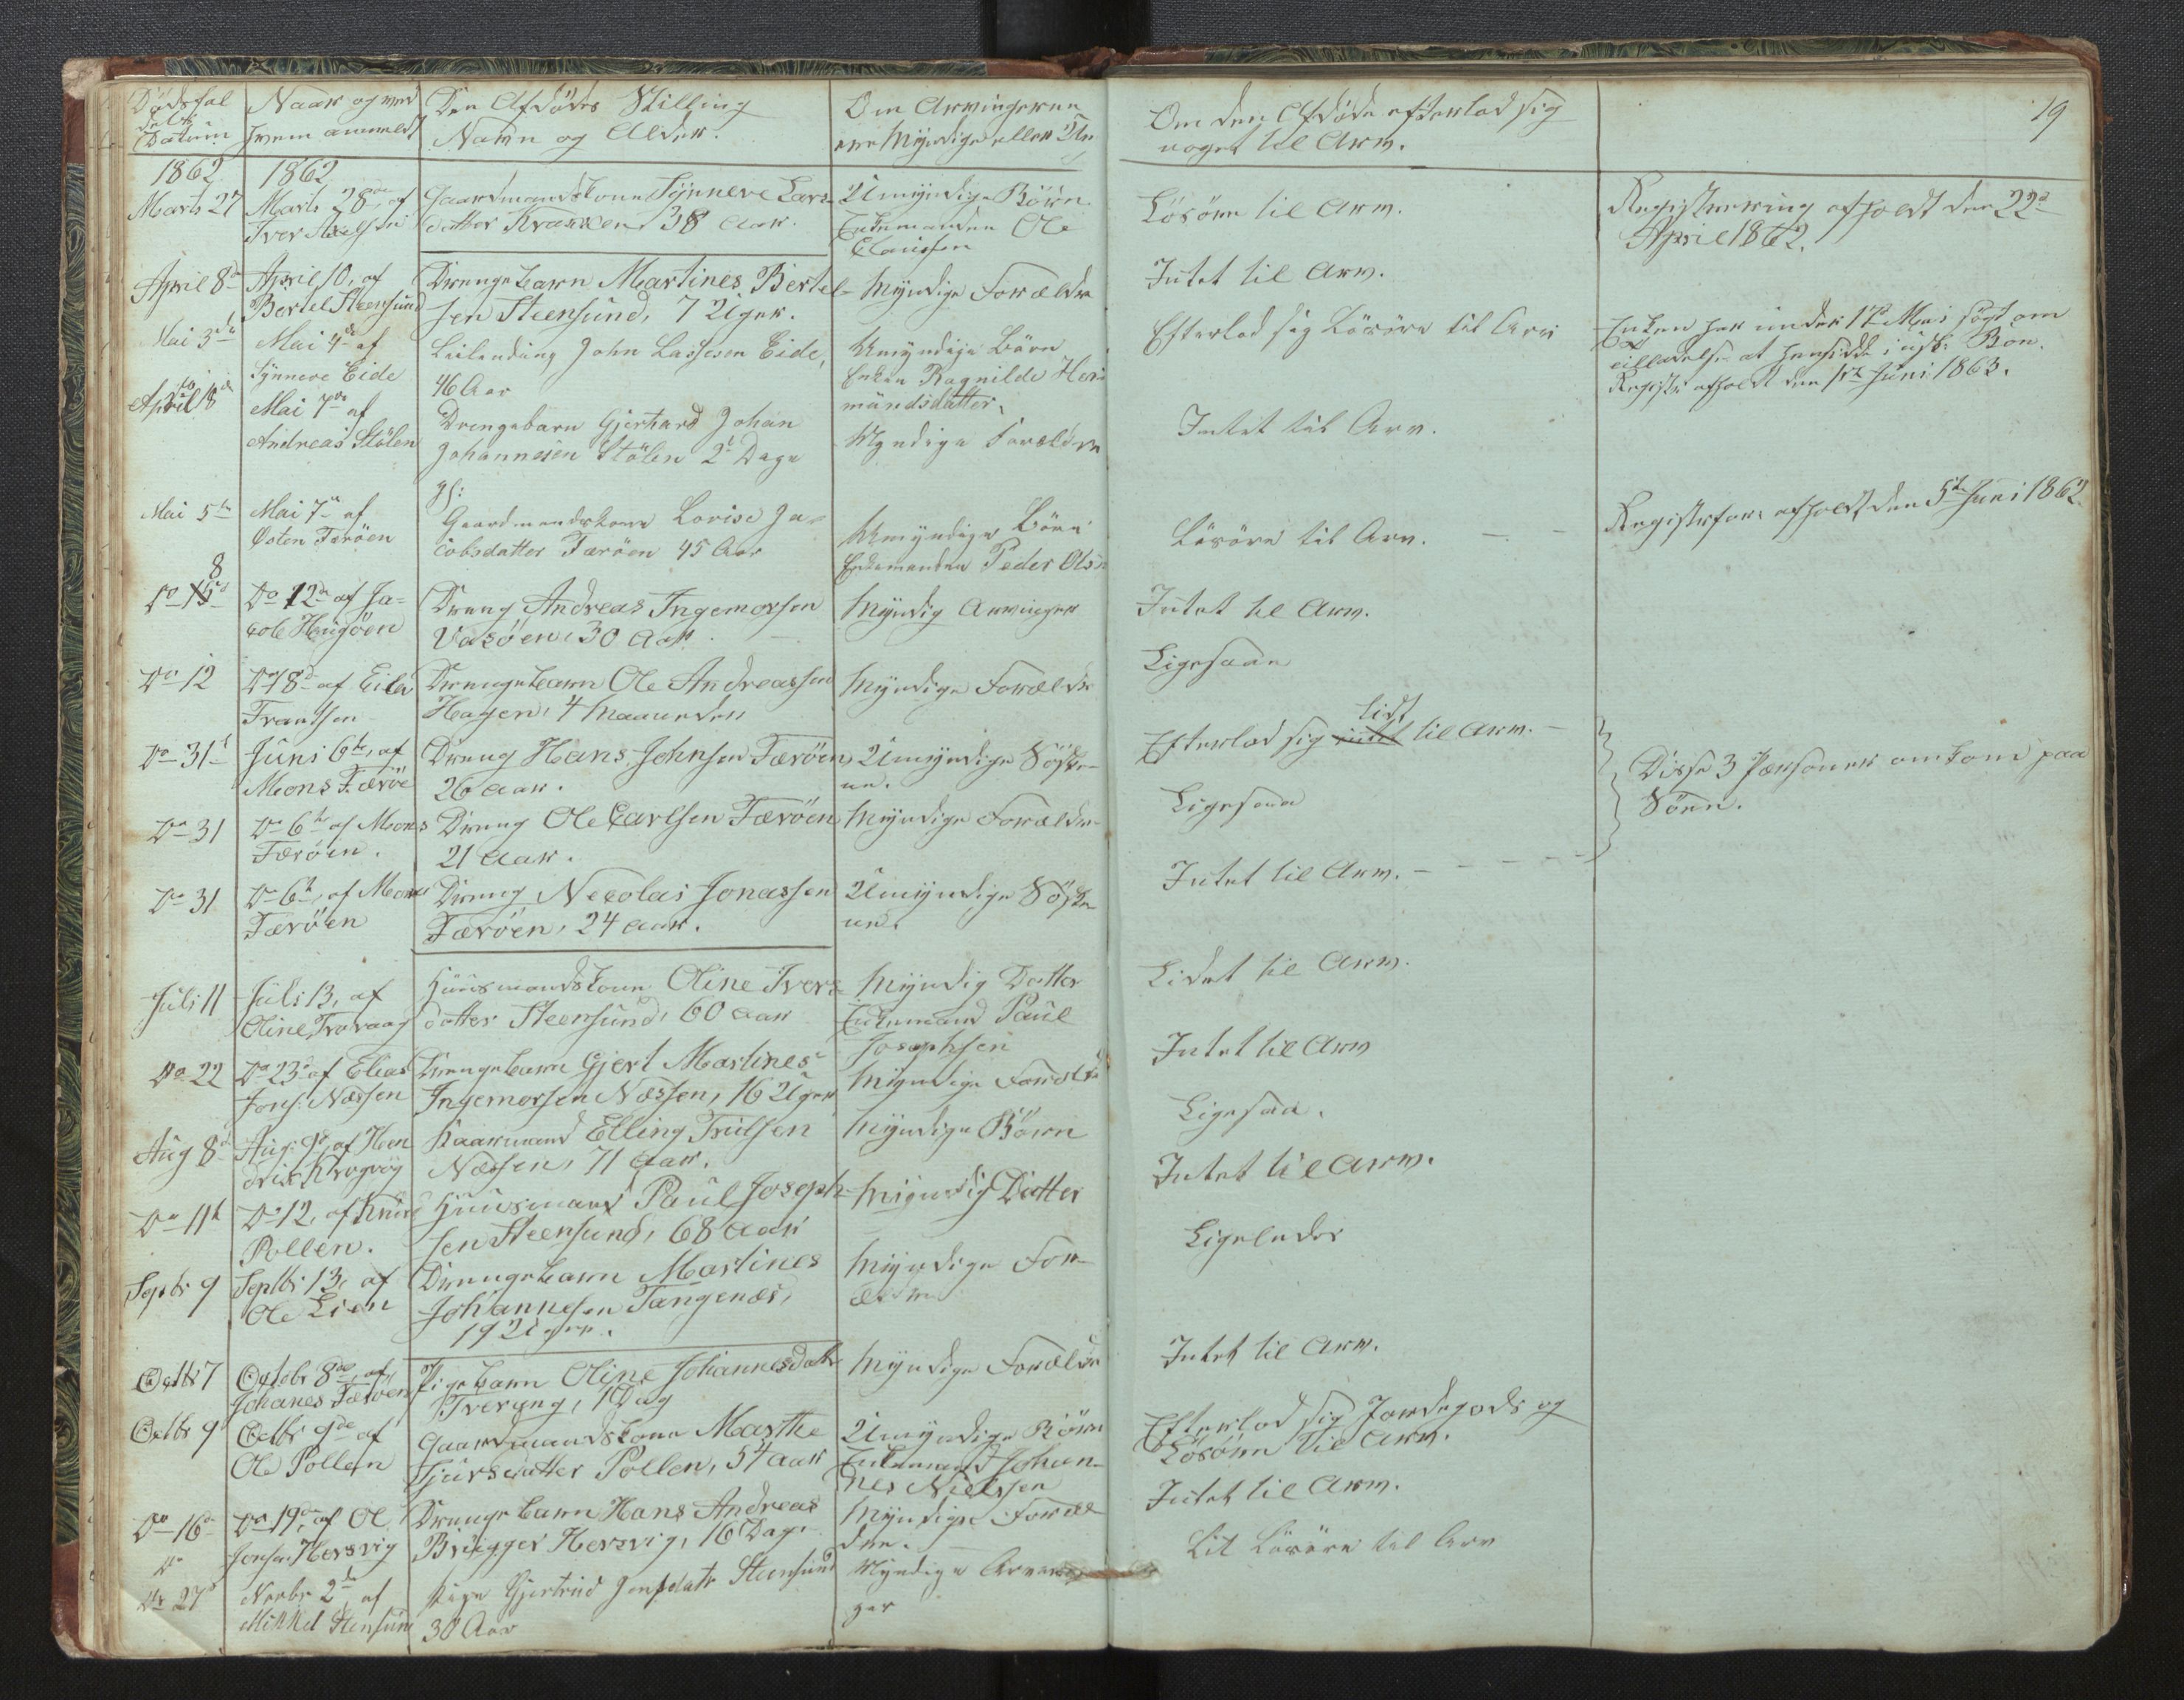 Dödsfal
dets
Datum
Naar og ved
hvem anmeldt
Den Afdödes Stilling
Navn og Alder.
Om Arvingerne
ere Myndige eller Um
Om den Afdöde efterlod sig
noget til Arv.
19
1862
Marts 27
1862
Marts 28de af
Iver
Gaardmandskone Synneve Lars-
datter Krakken 38 Aar.
Umyndige Börn
Enkemanden Ole
Claussen
Lösöre til Arv.
Registrering afholdt den 22de
April 1862.
April 8de
April 10, af
Bertel Steensund
Drengebarn Martines Bertel-
sen Steensund, 7 Uger.
Myndige Forældre
Intet til Arv.
Mai 3die
Mai 4de af
Synneve Eide
Leilending John Lassesen Eide,
46 Aar
Umyndige Börn
Enken Ragnilde Her-
mundsdatter.
Efterlod sig Lösöre til Arv
Enken har under 17de Mai sögt om
tilladelse at hensidde i uskt: Bo.
Registr afholdt den 1ste Juni 1863.
April 18de
Mai 7de af
Andreas Stölen
Drengebarn Gjerhard Johan
Johannesen Stölen 2 Dage
gl:
Myndige Forældre
Intet til Arv.
Mai 5te
Mai 7de af
Østen Færöen
Gaardmandskone Lovise Ja-
cobsdatter Færöen 45 Aar
Umyndige Börn
Enkemanden Peder Olsn
Lösöre til Arv. — -
Registrfor: afholdt den 5te Juni 1862
8
Do 15d
Do 12de af Ja-
cob Haugöen
Dreng Andreas Ingemorsen
Vasöen, 30 Aar.
Myndig Arvinger
Intet til Arv.
Do 12
Do 18de af Eilev
Frantsen
Drengebarn Ole Andreassen
Hagen, 4 Maaneder
Myndige Forældre
Ligesaa
Do 31t
Juni 6te, af
Mons Færöe
Dreng Hans Johnsen Færöen,
26 Aar.
Umyndige Södske-
ne.
lidt
Efterlod sig intet til Arv. —
Disse 3 Personer omkom paa
Söen.
Do 31
Do 6te af Mons
Færöen.
Dreng Ole Carlsen Færöen
21 Aar.
Myndige Forældre
Ligesaa
Do 31
Do 6te, af Mons
Færöen
Dreng Necolai Jonassen
Færöen, 24 Aar.
Umyndige Södske-
ne.
Intet til Arv. — - - - -
Juli 11
Juli 13, af
Oline Travaag
Huusmandskone Oline Ivers-
datter Steensund, 60 Aar
Myndig Datter
Enkemand Paul
Josephsen
Lidet til Arv.
Do 22
Do 23de af Elias
Jons. Næssen
Drengebarn Gjert Martines
Ingemorsen Næssen, 16 Uger
Myndige Forældre
Intet til Arv
Aug 8de
Aug. 9de, af Hen
drik Krogvög
Kaarmand Elling Trulsen
Næssen, 71 Aar.
Myndige Börn
Ligesaa.
Do 11t
Do 12, af Knud
Pollen.
Huusmand Paul Joseph-
sen Steensund, 68 Aar
Myndig Datter
Intet til Arv.
Septbr 9
Septbr 13, af
Ole Lien
Drengebarn Martines
Johannesen Tangenæs,
19 Uger.
Myndige For-
ældre
Ligeledes
Octbr 7
Octobr 8de, af
Johanes Færöen
Pigebarn Oline Johannesdatr
Tverang, 1 Dag
Myndige Forældre
Intet til Arv.
Octbr 9
Octbr 9de af
Ole Pollen
Gaardmandskone Marthe
Sjursdatter Pollen, 54 Aar
Umyndige Börn
Enkemand Johan-
nes Nielssen
Efterlod sig Jordegods og
Lösöre til Arv.
Do 16de
Do 19de, af Ol.
Jonsen Hersvig
Drengebarn Hans Andreas
Brügger Hersvig, 16 Dage
Myndige Foræl-
dre.
Intet til Arv.
Do
Do 27de
Novbr 2de af
Mikkel Stensund
Pige Gjertrud Jensdatr Stensund
30 Aar
Myndige Arvin-
ger
Lit Lösöre til Arv